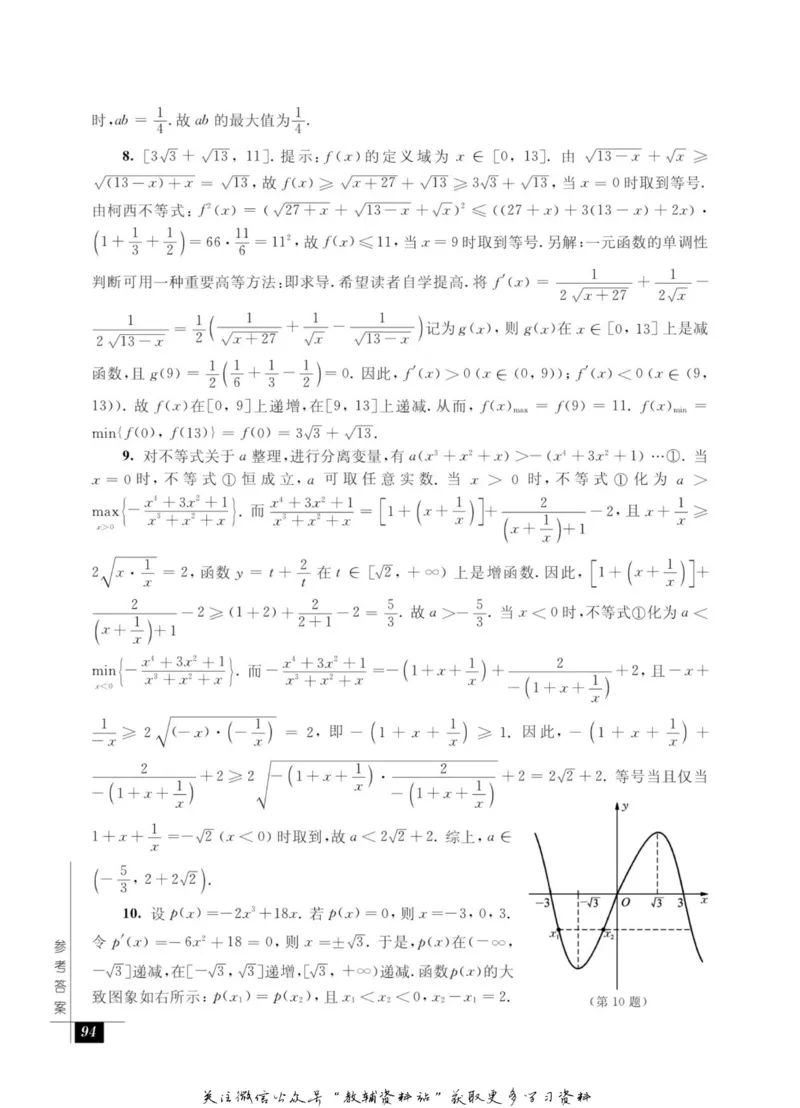 时,ab = 1/4.故 ab 的最大值为 1/4.
8. [3√3 + √13, 11]. 提示: f(x)的定义域为 x ∈ [0, 13]. 由 √(13-x) + √x ≥
√((13-x)+x) = √13,故 f(x) ≥ √(x+27) + √13 ≥ 3√3 + √13,当 x = 0 时取到等号.
由柯西不等式: f²(x) = (√(27+x) + √(13-x) + √x)² ≤ ((27+x) + 3(13-x) + 2x)·
(1 + 1/3 + 1/2) = 66·11/6 = 11²,故 f(x) ≤ 11,当 x = 9 时取到等号.另解:一元函数的单调性
判断可用一种重要高等方法:即求导.希望读者自学提高.将 f′(x) = 1/(2√(x+27)) + 1/(2√x) -
1/(2√(13-x)) = 1/2(1/√(x+27) + 1/√x - 1/√(13-x))记为g(x),则 g(x)在 x ∈ [0, 13]上是减
函数,且 g(9) = 1/2(1/6 + 1/3 - 1/2) = 0. 因此, f′(x) > 0(x ∈ (0, 9)); f′(x) < 0(x ∈ (9,
13)). 故 f(x)在[0, 9]上递增,在[9, 13]上递减. 从而, f(x)max = f(9) = 11. f(x)min =
min{f(0), f(13)} = f(0) = 3√3 + √13.
9. 对不等式关于 a 整理,进行分离变量,有 a(x³ + x² + x) > -(x⁴ + 3x² + 1) …①. 当
x = 0 时, 不等式 ① 恒成立, a 可取任意实数. 当 x > 0 时, 不等式 ① 化为 a >
max x>0 {-(x⁴+3x²+1)/(x³+x²+x)}. 而 (x⁴+3x²+1)/(x³+x²+x) = [1+(x+1/x)] + 2/((x+1/x)+1) - 2,且 x + 1/x ≥
2√(x·1/x) = 2,函数 y = t + 2/t 在 t ∈ [√2, +∞) 上是增函数.因此, [1+(x+1/x)] +
2/((x+1/x)+1) - 2 ≥ (1+2) + 2/(2+1) - 2 = 5/3. 故 a > -5/3. 当 x < 0 时,不等式①化为 a <
min x<0 {-(x⁴+3x²+1)/(x³+x²+x)}. 而 -(x⁴+3x²+1)/(x³+x²+x) = -(1+x+1/x) + 2/(-(1+x+1/x)) + 2,且 -x +
1/(-x) ≥ 2√((-x)·(-1/x)) = 2, 即 -(1+x+1/x) ≥ 1. 因此, -(1+x+1/x) +
2/(-(1+x+1/x)) + 2 ≥ 2√(-(1+x+1/x)·2/(-(1+x+1/x))) + 2 = 2√2 + 2. 等号当且仅当
1 + x + 1/x = -√2 (x < 0)时取到,故 a < 2√2 + 2. 综上, a ∈
(-5/3, 2+2√2).
10. 设 p(x) = -2x³ + 18x. 若 p(x) = 0,则 x = -3, 0, 3.
令 p′(x) = -6x² + 18 = 0,则 x = ±√3. 于是, p(x)在(-∞,
-√3]递减,在[-√3, √3]递增,[√3, +∞)递减.函数p(x)的大
致图象如右所示: p(x₁) = p(x₂), 且 x₁ < x₂ < 0, x₂ - x₁ = 2.
y
-3 -√3 O √3 3 x
x₁ x₂
(第 10 题)
参考答案
94
关注微信公众号“教辅资料站”获取更多学习资料